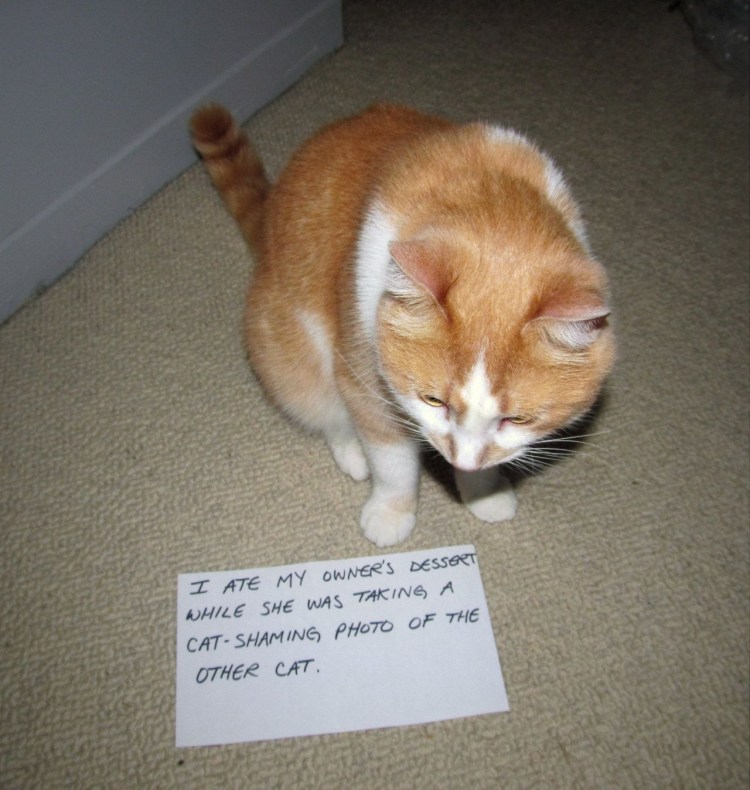 I ATE MY OWNER'S DESSERT
WHILE SHE WAS TAKING A
CAT-SHAMING PHOTO OF THE
OTHER CAT.